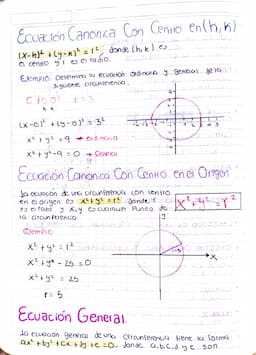 Ecuación Canonica Con Centro en (h,k)
(x-h)² + (y-k)² = r², donde (h,k) es
el centro y r es el radio.
Ejemplo: Determina la ecuación ordinaria y general de la
siguiente circunferencia.
C (0,0) r = 3
h k
(x-0)² + (y-0)² = 3²
x² + y² = 9 → Ordinaria
x² + y² - 9 = 0 → General
Ecuación Canonica Con Centro en el Origen
La ecuación de una circunferencia con centro
en el origen es x² + y² = r² donde r
es el radio y x,y es cualquier punto de
la circunferencia.
x² + y² = r²
Ejemplo:
x² + y² = r²
x² + y² - 25 = 0
x² + y² = 25
r = 5
y
x
Ecuación General.
La ecuación general de una circunferencia tiene la forma
ax² + by² + cx + dy + e = 0, donde a,b,c,d y e son